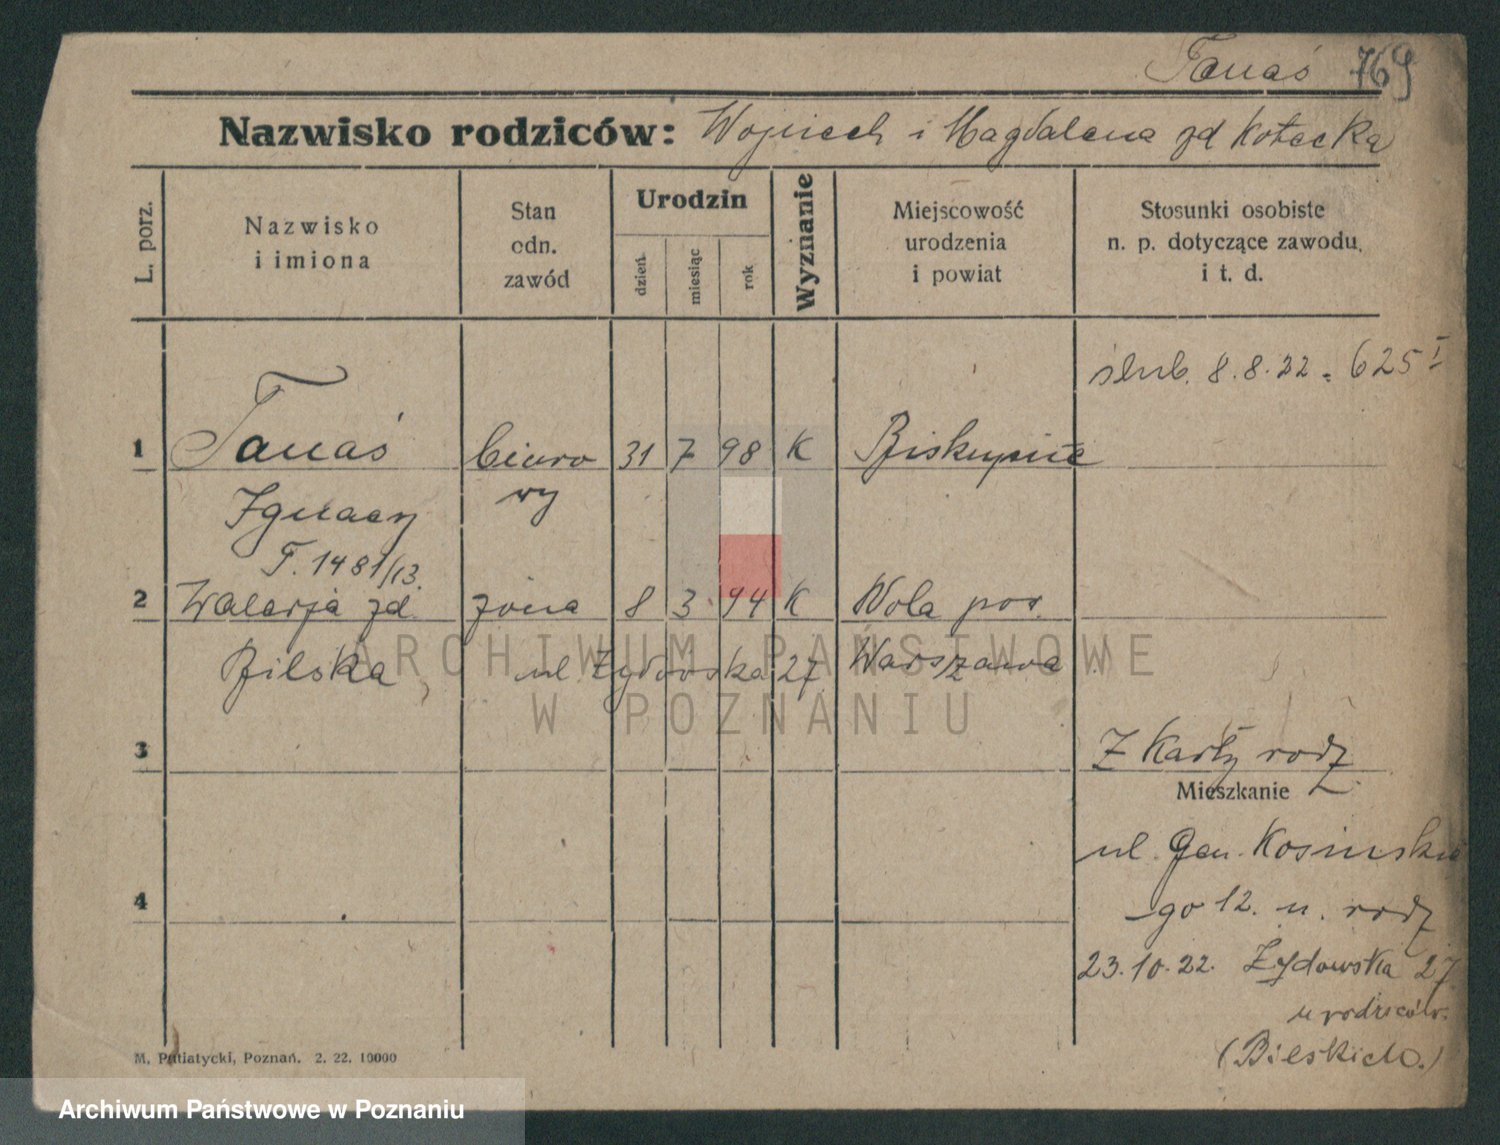 Tanaś 769
Nazwisko rodziców: Wojciech i Magdalena zd Kotecka
L. porz.
Nazwisko
i imiona
Stan
odn.
zawód
Urodzin
dzień
miesiąc
rok
Wyznanie
Miejscowość
urodzenia
i powiat
Stosunki osobiste
n. p. dotyczące zawodu,
i t. d.
ślub. 8.8.22. 625 I
1 Tanaś biuro 31 7 98 K Biskupice
Ignacy wy
F. 1481/13.
2 Walerja zd. żona 8 3 94 K Wola pow.
Bilska ul Żydowska 27 Warszawa
ARCHIWUM PAŃSTWOWE
W POZNANIU
3 Z Karty rodz
Mieszkanie
ul. Gen. Kosinskie
4 -go 12. u. rodz
23.10.22. Żydowska 27.
u rodziców.
(Bielskich.)
M. Putiatycki, Poznań. 2. 22. 10000
Archiwum Państwowe w Poznaniu